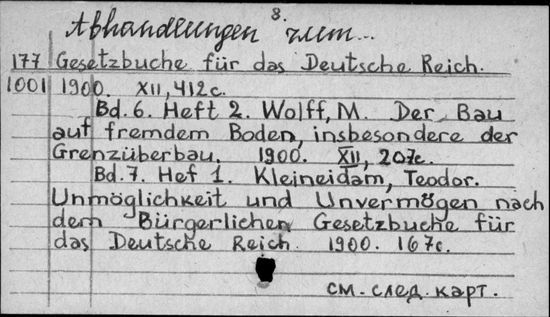 8.
Abhandlungen zum...
177 Gesetzbuche für das Deutsche Reich.
1001 1900. XII, 412c.
Bd. 6. Heft 2. Wolff, M. Der Bau
auf fremdem Boden, insbesondere der
Grenzüberbau. 1900. XII, 207c.
Bd. 7. Hef 1. Kleineidam, Teodor.
Unmöglichkeit und Unvermögen nach
dem Bürgerlichen Gesetzbuche für
das Deutsche Reich. 1900. 167c.
см. след. карт.